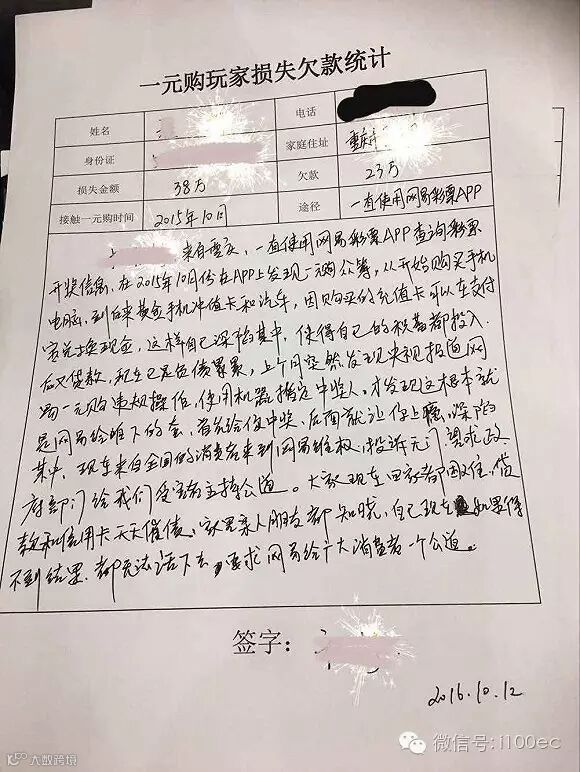 一元购玩家损失欠款统计
姓名 电话
身份证 家庭住址 重庆
损失金额 38万 欠款 23万
接触一元购时间 2015年10月 途径 一直使用网易彩票APP
来自重庆，一直使用网易彩票APP查询彩票
开奖信息，在2015年10月份在APP上发现一元购众筹，从开始购买手机
电脑，到后来黄金手机冲值卡和汽车，因购买的充值卡可以在支付
宝兑换现金，这样自己深陷其中，使得自己的积蓄都投入
后又贷款，现在已是负债累累，上个月突然发现央视报道网
易一元购违规操作，使用机器指定中奖人，才发现这根本就
是网易给咱下的套，首先给你中奖，后面就让你上瘾，深陷
其中，现在来自全国的消费者来到网易维权，投诉无门望求政
府部门给我们受害者主持公道。大家现在回家都困难，借
款和信用卡天天催债，家里亲人朋友都知晓，自己现在如果得
不到结果，都无法活下去，要求网易给广大消费者一个公道。
签字：
2016.10.12
微信号：i100ec
大数跨境